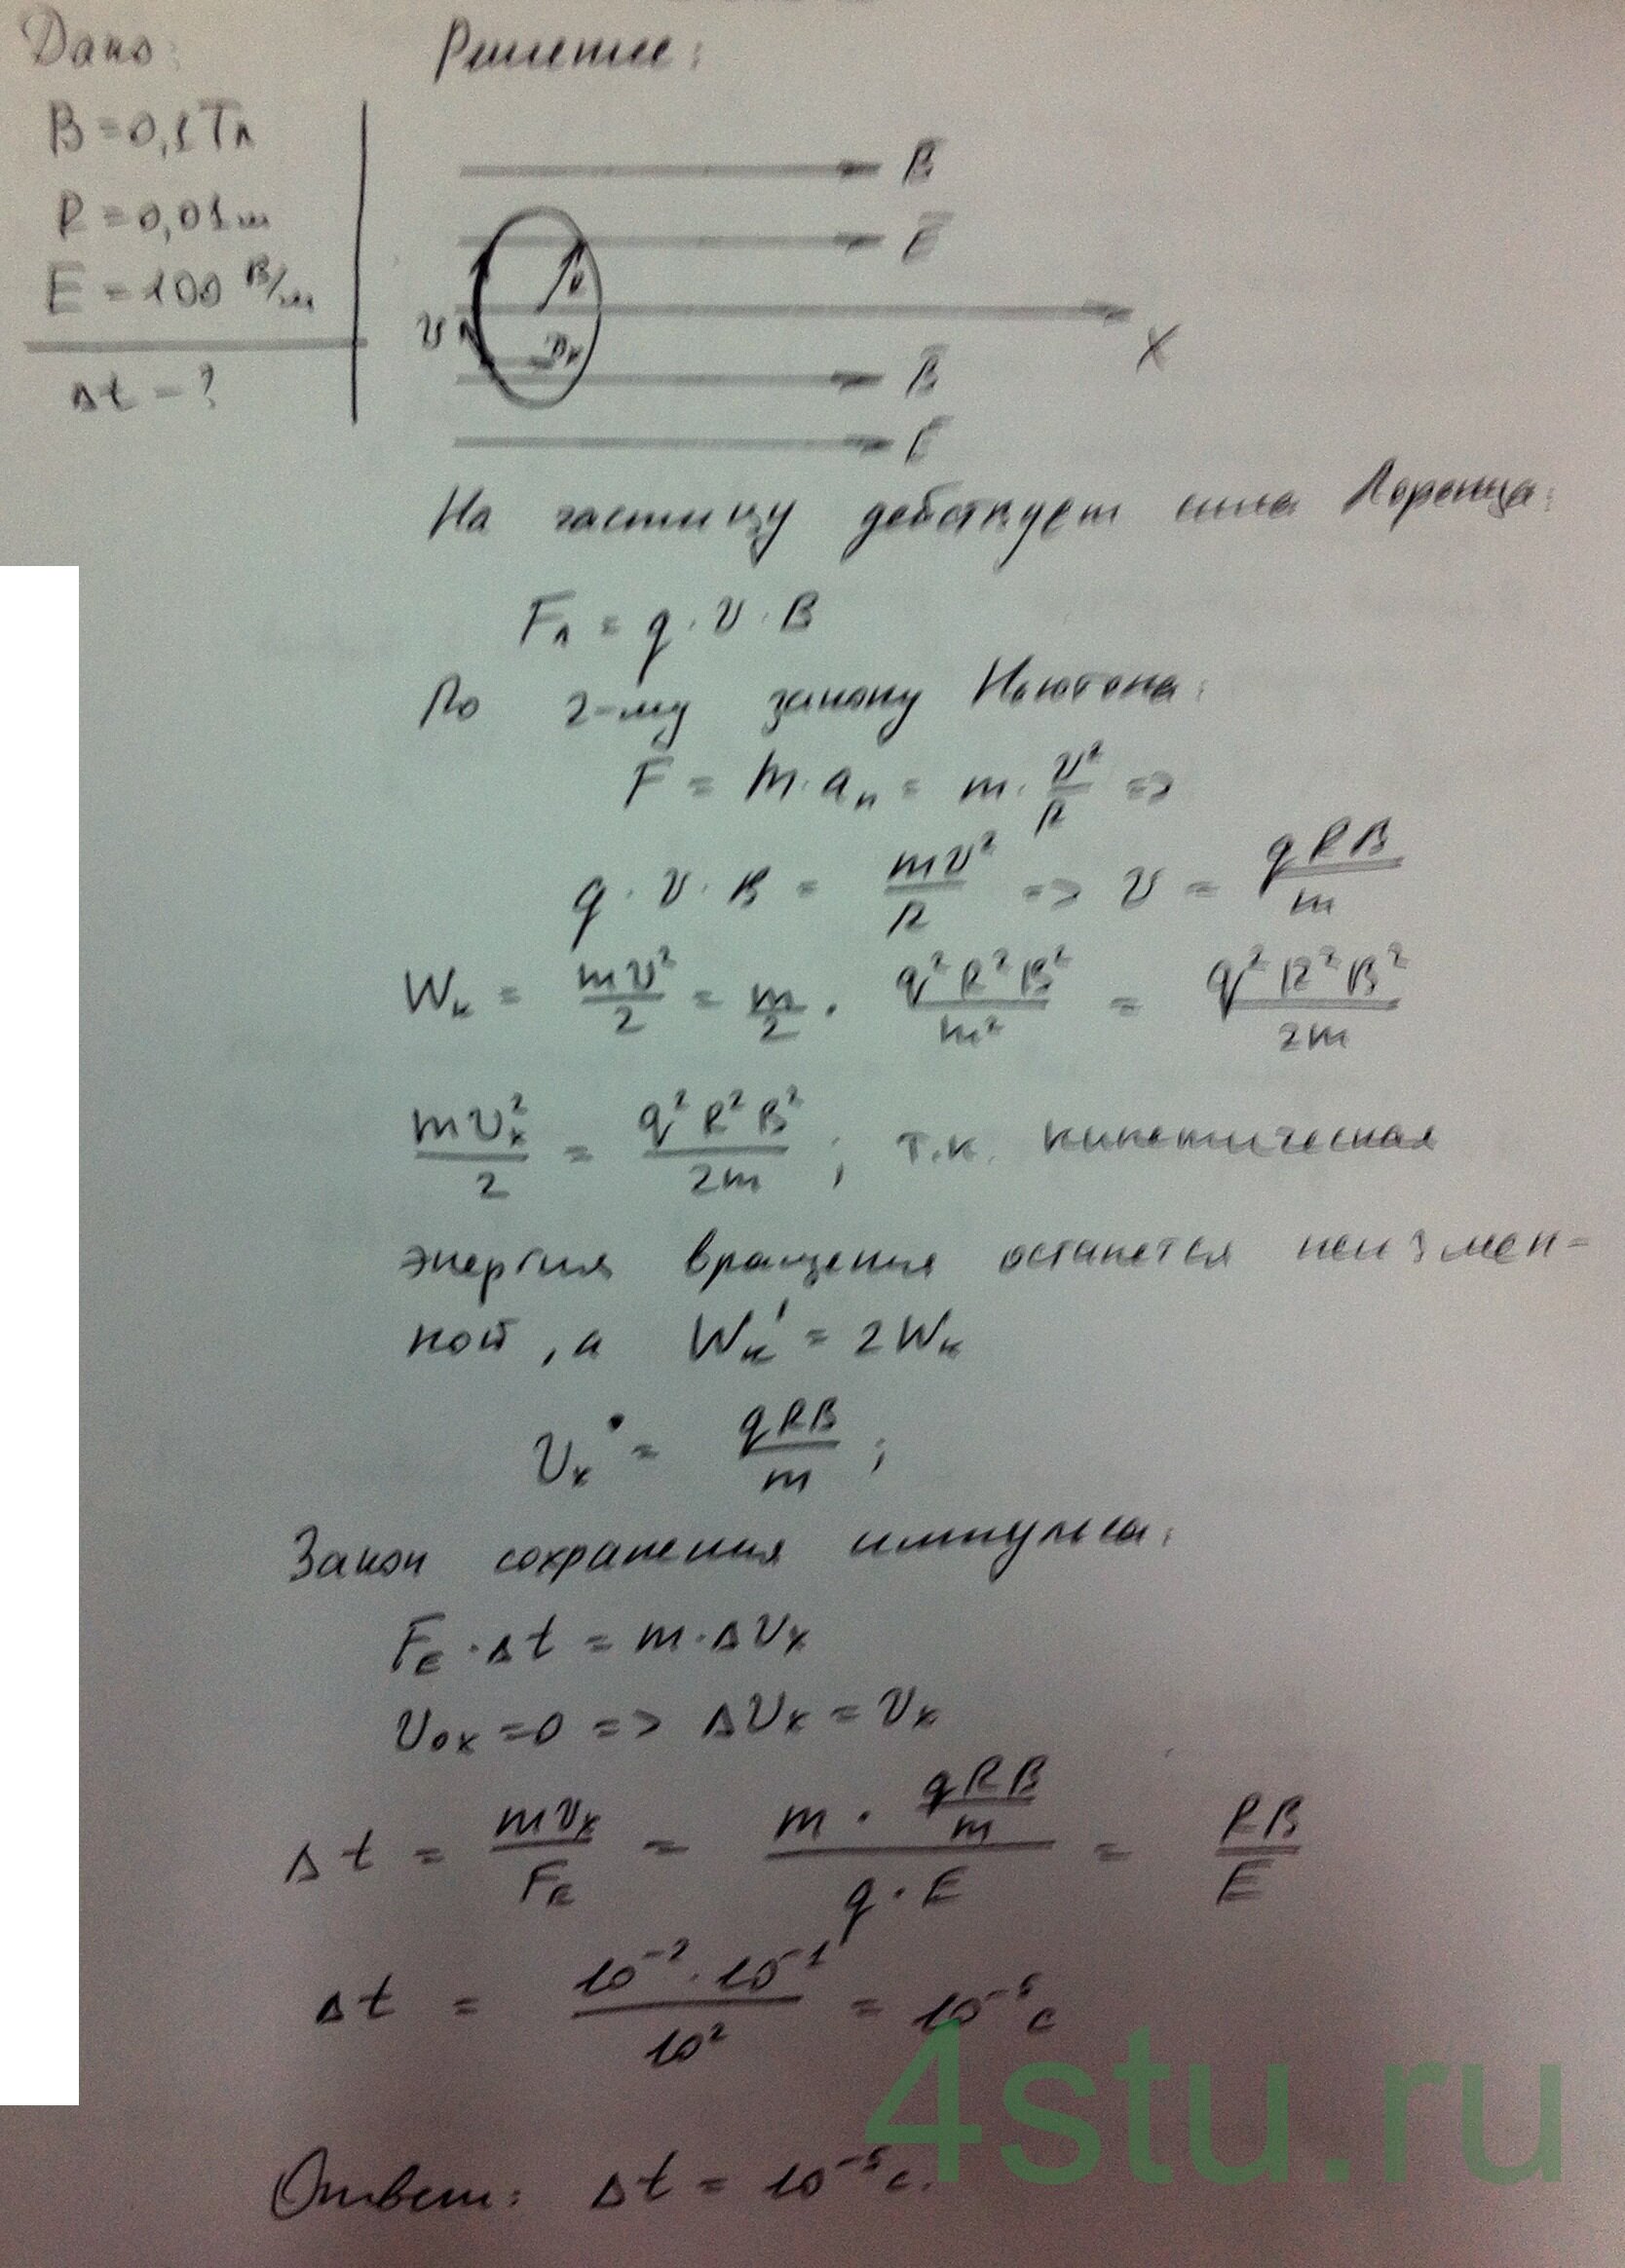 Дано:
B = 0,1 Тл
R = 0,01 м
E = 100 В/м
Δt - ?
Решение:
B̅
E̅
R
υ
X
B̅
E̅
На частицу действует сила Лоренца:
Fл = q · υ · B
По 2-му закону Ньютона:
F = m · aₙ = m · υ²/R =>
q · υ · B = mυ²/R => υ = qRB/m
Wк = mυ²/2 = m/2 · q²R²B²/m² = q²R²B²/2m
mυₓ²/2 = q²R²B²/2m ; т.к. кинетическая
энергия вращения останется неизмен-
ной, а Wк' = 2Wк
υₓ = qRB/m ;
Закон сохранения импульса:
F_E · Δt = m · Δυₓ
υ₀ₓ = 0 => Δυₓ = υₓ
Δt = mυₓ/F_E = (m · qRB/m)/(q · E) = RB/E
Δt = 10⁻² · 10⁻¹/10² = 10⁻⁵ с
Ответ: Δt = 10⁻⁵ с.
4stu.ru